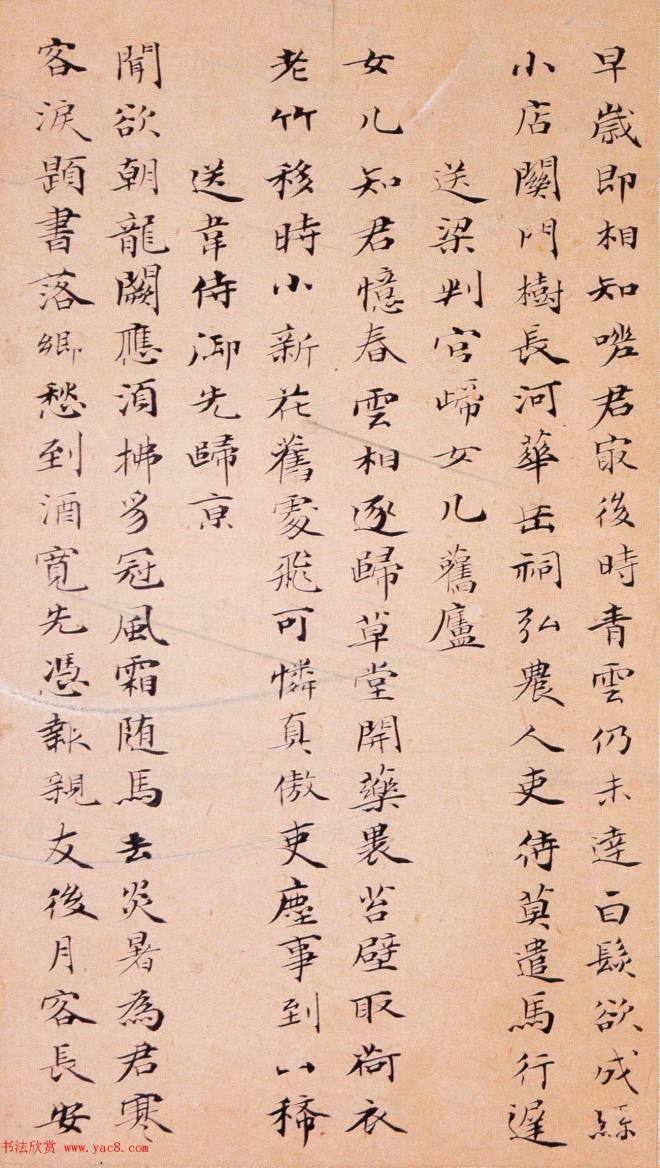 早歲即相知嗟君㝡後時青雲仍未達白髮欲成絲
小店關門樹長河華岳祠弘農人吏待莫遣馬行遲
送梁判官歸女几舊廬
女几知君憶春雲相逐歸草堂開藥裹苔壁取荷衣
老竹移時小新花舊處飛可憐真傲吏塵事到山稀
送韋侍御先歸京
聞欲朝龍闕應須拂豸冠風霜随馬去炎暑為君寒
客淚題書落鄉愁到酒寬先憑報親友後月客長安
书法欣赏 www.yac8.com